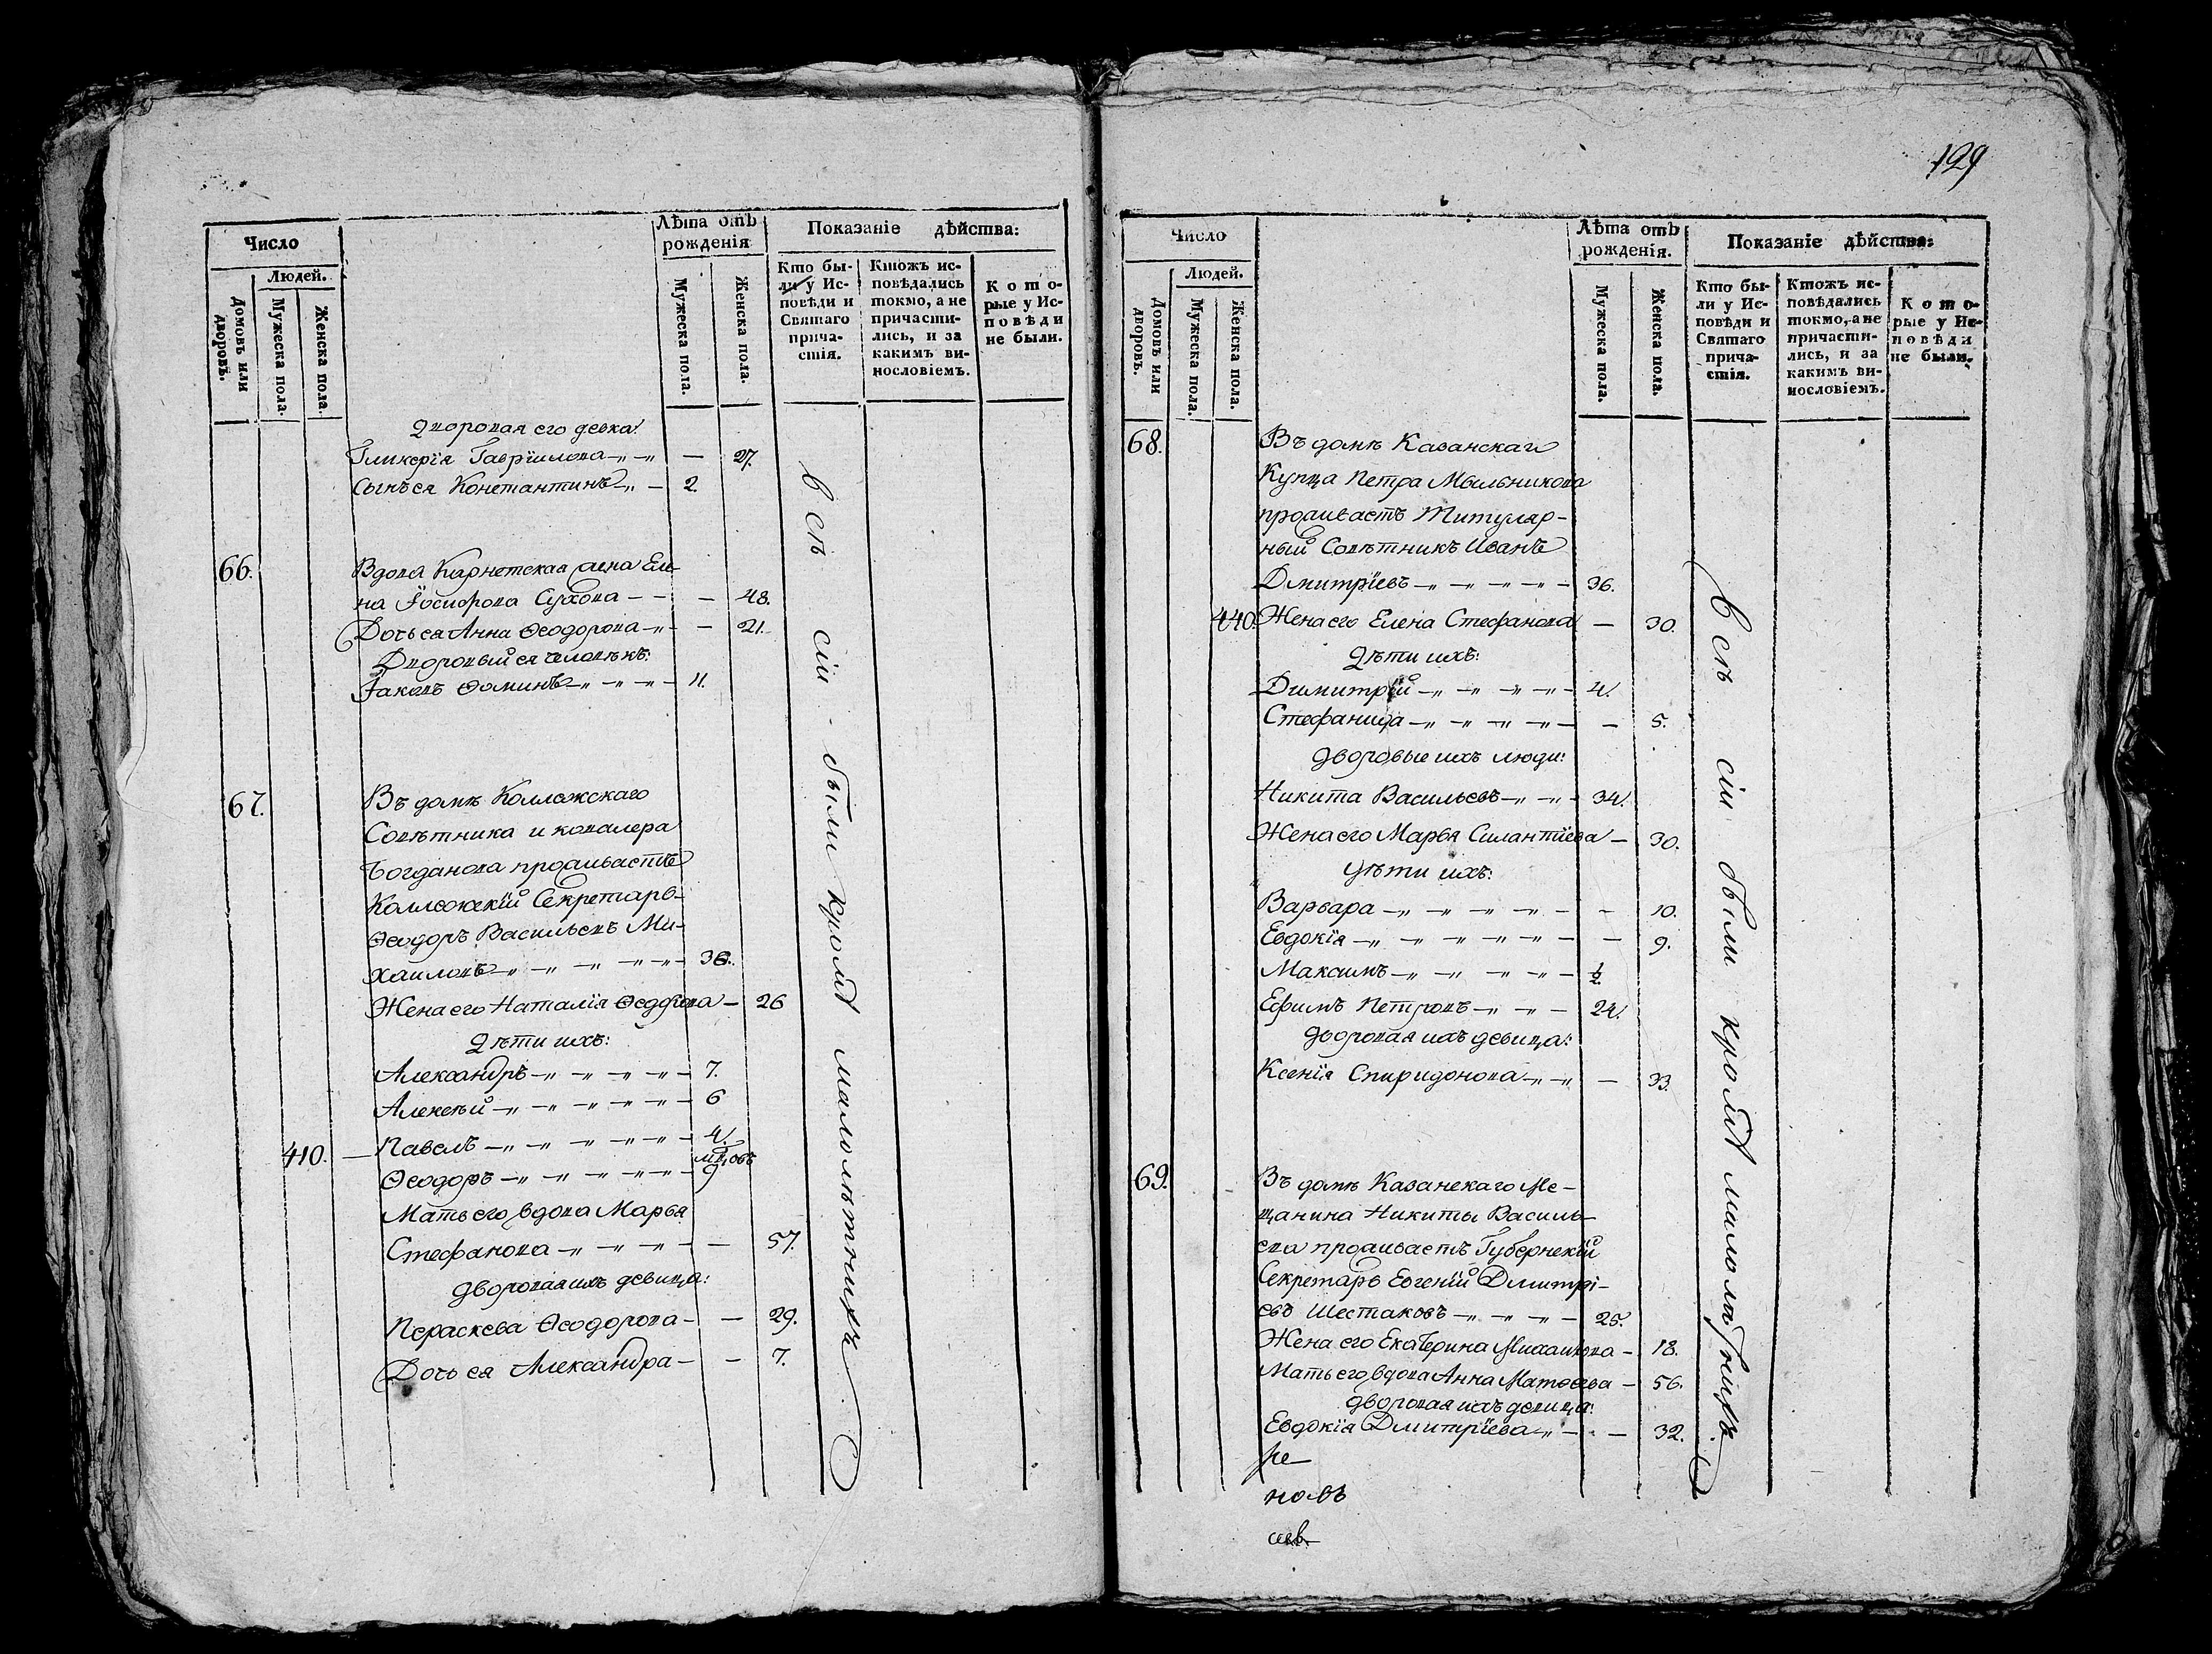 Число
Людей.
Домовъ или дворовъ.
Мужеска пола.
Женска пола.
Лѣта отъ рожденія
Мужеска пола.
Женска пола.
Показаніе дѣйства:
Кто бы-
ли у Ис-
повѣди и
Святаго
прича-
стія.
Ктожъ ис-
повѣдались
токмо, а не
причасти-
лись, и за
какимъ ви-
нословіемъ.
К о т о-
рые у Ис-
п о в ѣ д и
не были.
Дворовая его девка:
Гликерія Гавріилова — 27.
Сынъ ея Константинъ — 2.
66.
Вдова Карнетская жена Еле-
на Іосифова Сухова — 48.
Дочь ея Анна Ѳеодорова — 21.
Дворовый ея человѣкъ:
Іаковъ Ѳоминъ — 11.
67.
Въ домѣ Коллежскаго
Совѣтника и ковалера
Богданова проживастъ
Коллежскій Секретарь
Ѳеодоръ Васильевъ Ми-
хаиловъ — 36.
Жена его Наталія Ѳедорова — 26
Дѣти ихъ:
Александръ — 7.
Алексѣй — 6
410. — Павелъ — 4.
мцовъ
Ѳеодоръ — 9
Мать его вдова Марья
Стефанова — 57.
Дворовая ихъ девица:
Пераскева Ѳеодорова — 29.
Дочь ея Александра — 7.
всѣ сіи были кромѣ малолѣтнихъ
129
Число
Людей.
Домовъ или дворовъ.
Мужеска пола.
Женска пола.
Лѣта отъ рожденія.
Мужеска пола.
Женска пола.
Показаніе дѣйства:
Кто бы-
ли у Ис-
повѣди и
Святаго
прича-
стія.
Ктожъ ис-
повѣдались
токмо, а не
причасти-
лись, и за
какимъ ви-
нословіемъ.
К о т о-
рые у Ис-
п о в ѣ д и
не были.
68.
Въ домѣ Казанскаго
Купца Петра Мыльникова
проживастъ Титуляр-
ный Совѣтникъ Иванъ
Дмитріевъ — 36.
440. Жена его Елена Стефанова — 30.
Дѣти ихъ:
Димитрій — 4.
Стефанида — 5.
Дворовые ихъ люди:
Никита Васильевъ — 34.
Жена его Марья Силантіева — 30.
Дѣти ихъ:
Варвара — 10.
Евдокія — 9.
Максимъ — ½
Ефимъ Петровъ — 24.
Дворовая ихъ девица:
Ксенія Спиридонова — 33.
69.
Въ домѣ Казанскаго Ме-
щанина Никиты Василь-
ева проживастъ Губернскій
Секретарь Евгеній Дмитрі-
евъ Шестаковъ — 25.
Жена его Екатерина Михаилова — 18.
Мать его вдова Анна Матвѣева — 56.
Дворовая ихъ девица:
Евдокія Дмитріева — 32.
всѣ сіи были кромѣ малолѣтнихъ
ре
новъ